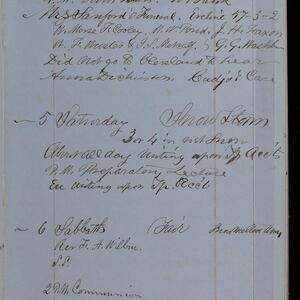 Mrs Sanford's Funeral. Eccline 57-3-2
W. Morse F Cooley, M. W. Ford, J. H. Faxon
W. F. Wooster & J. S. Metcalf, G. G. Washbn
Did not go to Cleaveland to hear
Anna Dickinson Cudjo's Cave
5 Saturday Snow Storm
3 or 4 in wt Snow
About all day Writing upon Tp Acc'ts
P.M. Preparatory Lecture
Eve writing upon Tp. Acc't
6 Sabbath Fair
Rev F. A. Wilber
S.S.
2 P.M. Communion